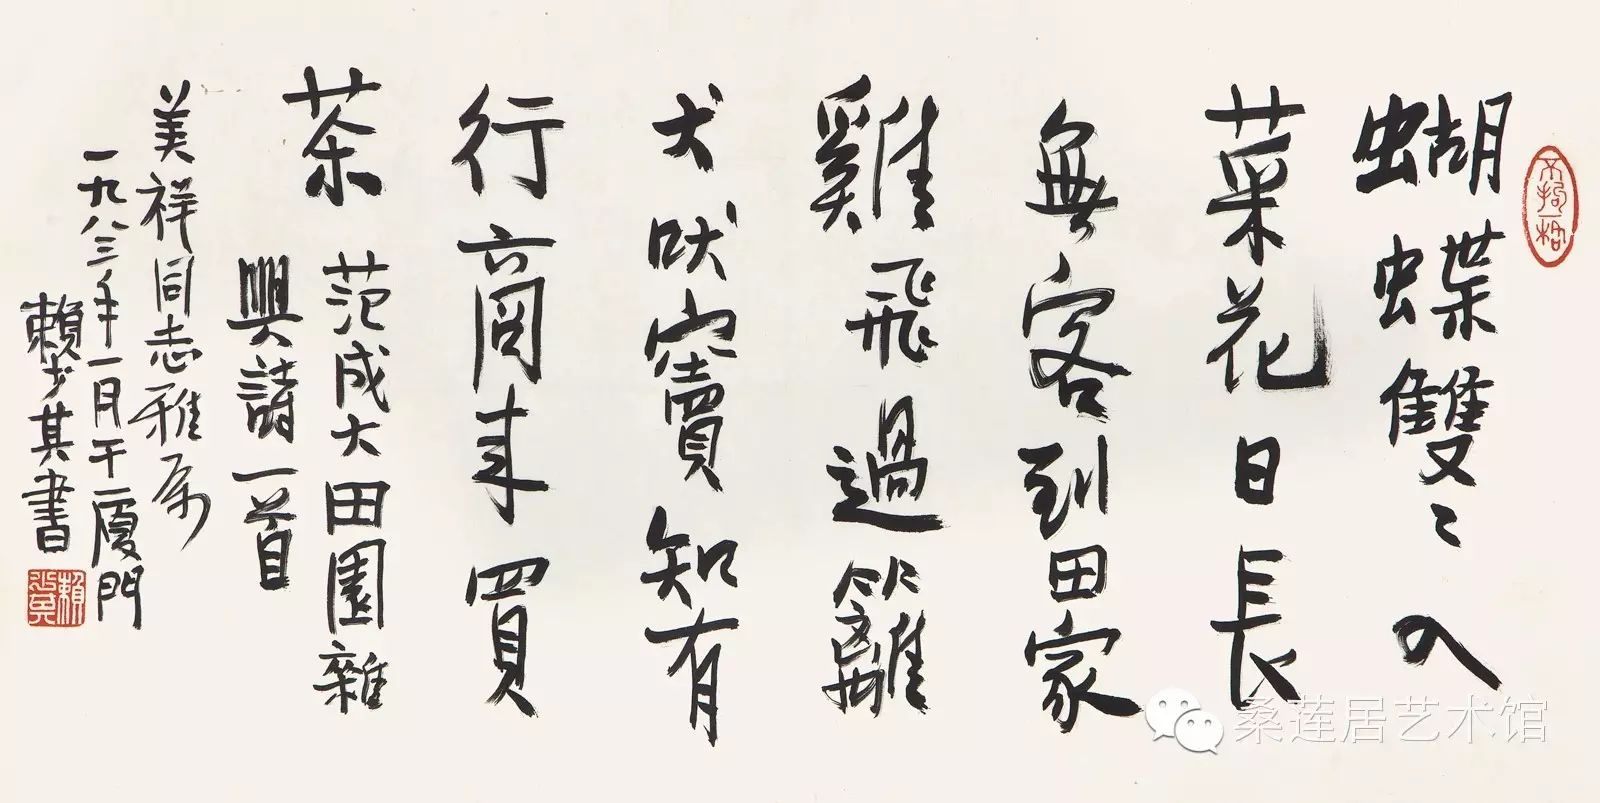 蝴蝶雙〻入
菜花日長
無客到田家
雞飛過籬
犬吠竇知有
行商来買
茶
范成大田園雜
興詩一首
美祥同志雅属
一九八三年一月于厦門
賴少其書
不拘一格
賴少其
桑莲居艺术馆